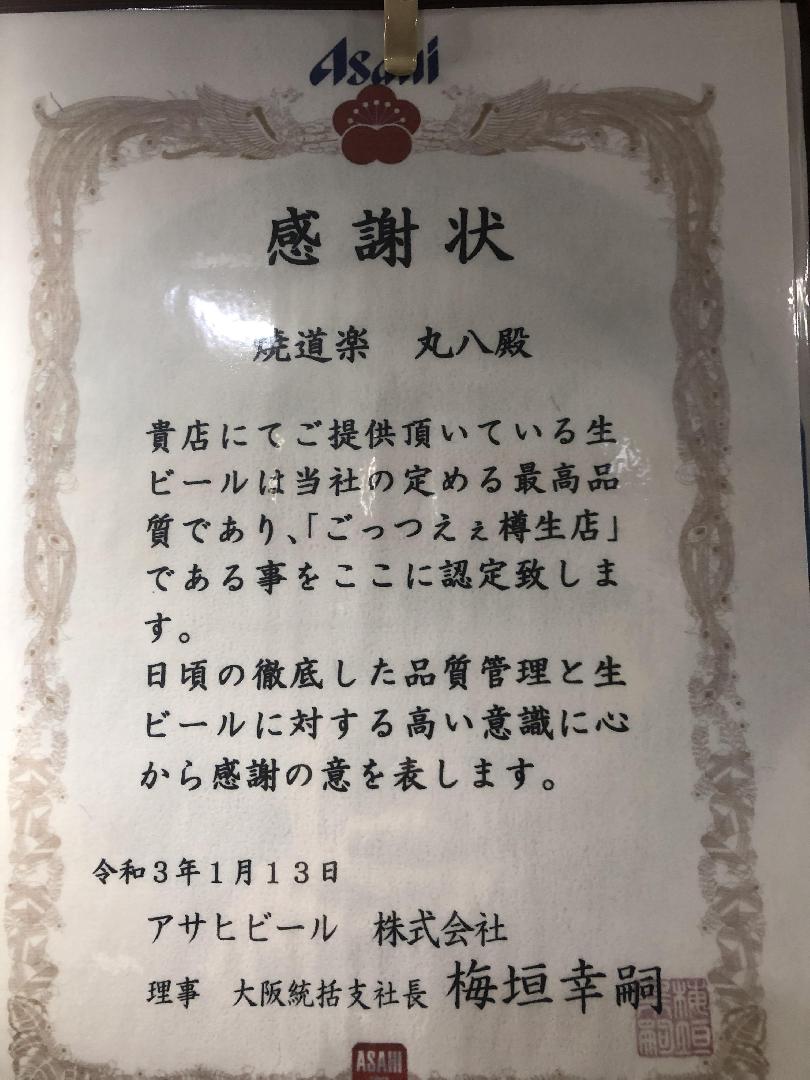 Asahi
感謝状
焼道楽　丸八殿
貴店にてご提供頂いている生
ビールは当社の定める最高品
質であり、「ごっつえぇ樽生店」
である事をここに認定致しま
す。
日頃の徹底した品質管理と生
ビールに対する高い意識に心
から感謝の意を表します。
令和３年１月１３日
アサヒビール　株式会社
理事　大阪統括支社長 梅垣幸嗣
ASAHI